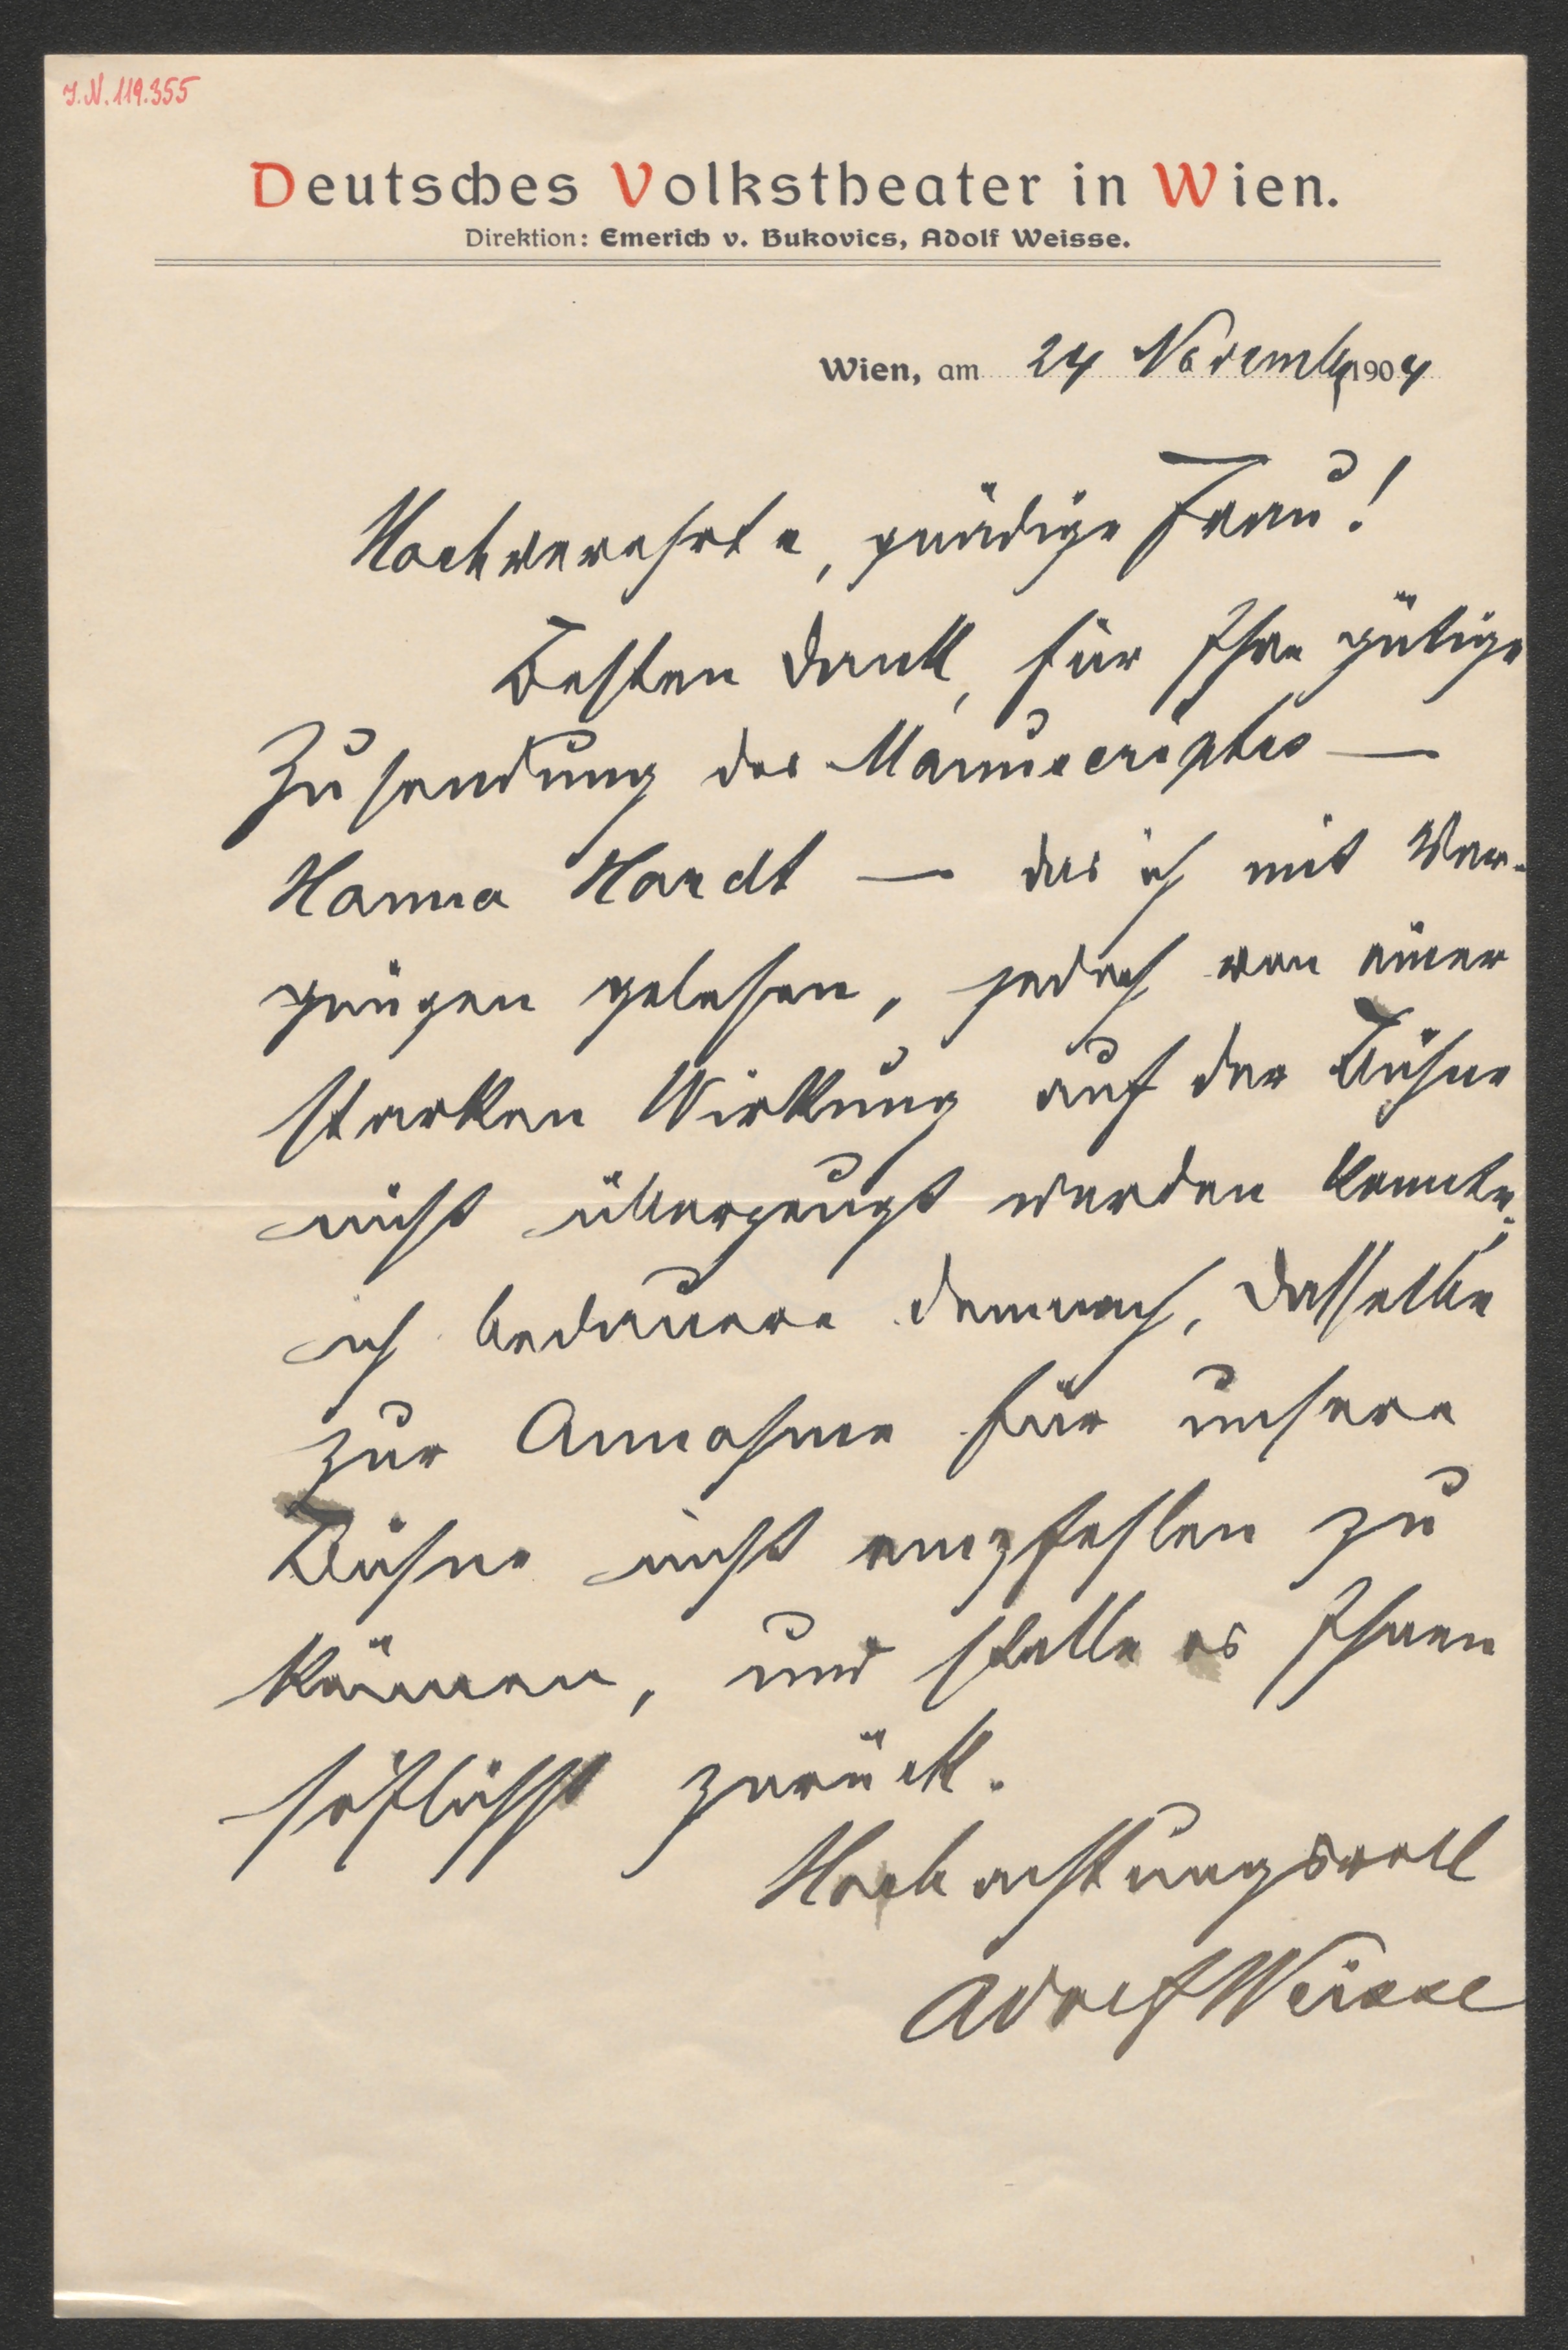 J.N. 119.355
Deutsches Volkstheater in Wien.
Direktion: Emerich v. Bukovics, Adolf Weisse.
Wien, am 24 Novemb 1904
Hochverehrte, gnädige Frau!
Besten Dank, für Ihre gütige
Zusendung des Manuscriptes —
Hanna Hardt — das ich mit Ver-
gnügen gelesen, jedoch von einer
starken Wirkung auf der Bühne
nicht überzeugt werden konnte;
ich bedauere demnach, dasselbe
zur Annahme für unsere
Bühne nicht empfehlen zu
können, und stelle es Ihnen
höflichst zurück.
Hochachtungsvoll
Adolf Weisse